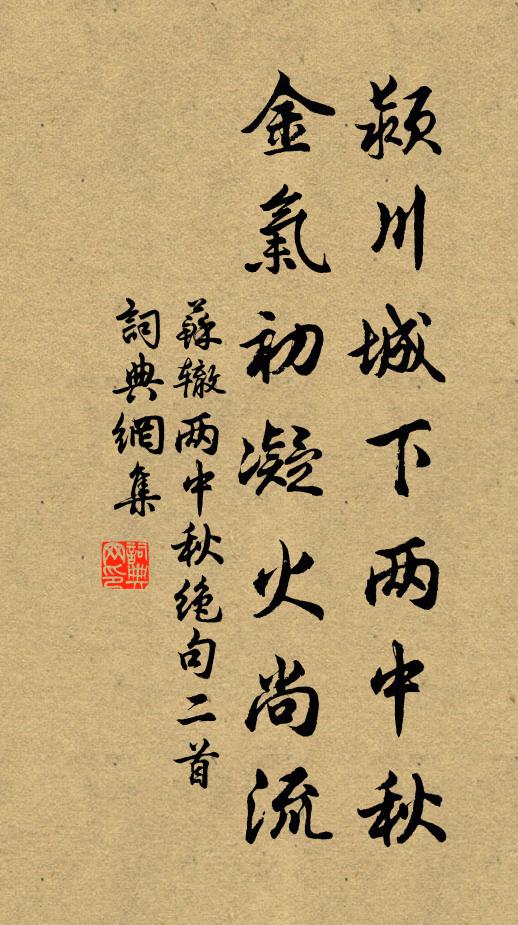 潁川城下两中秋
金氣初凝火尚流
蘇辙两中秋绝句二首
詞典網集
詞典
网印